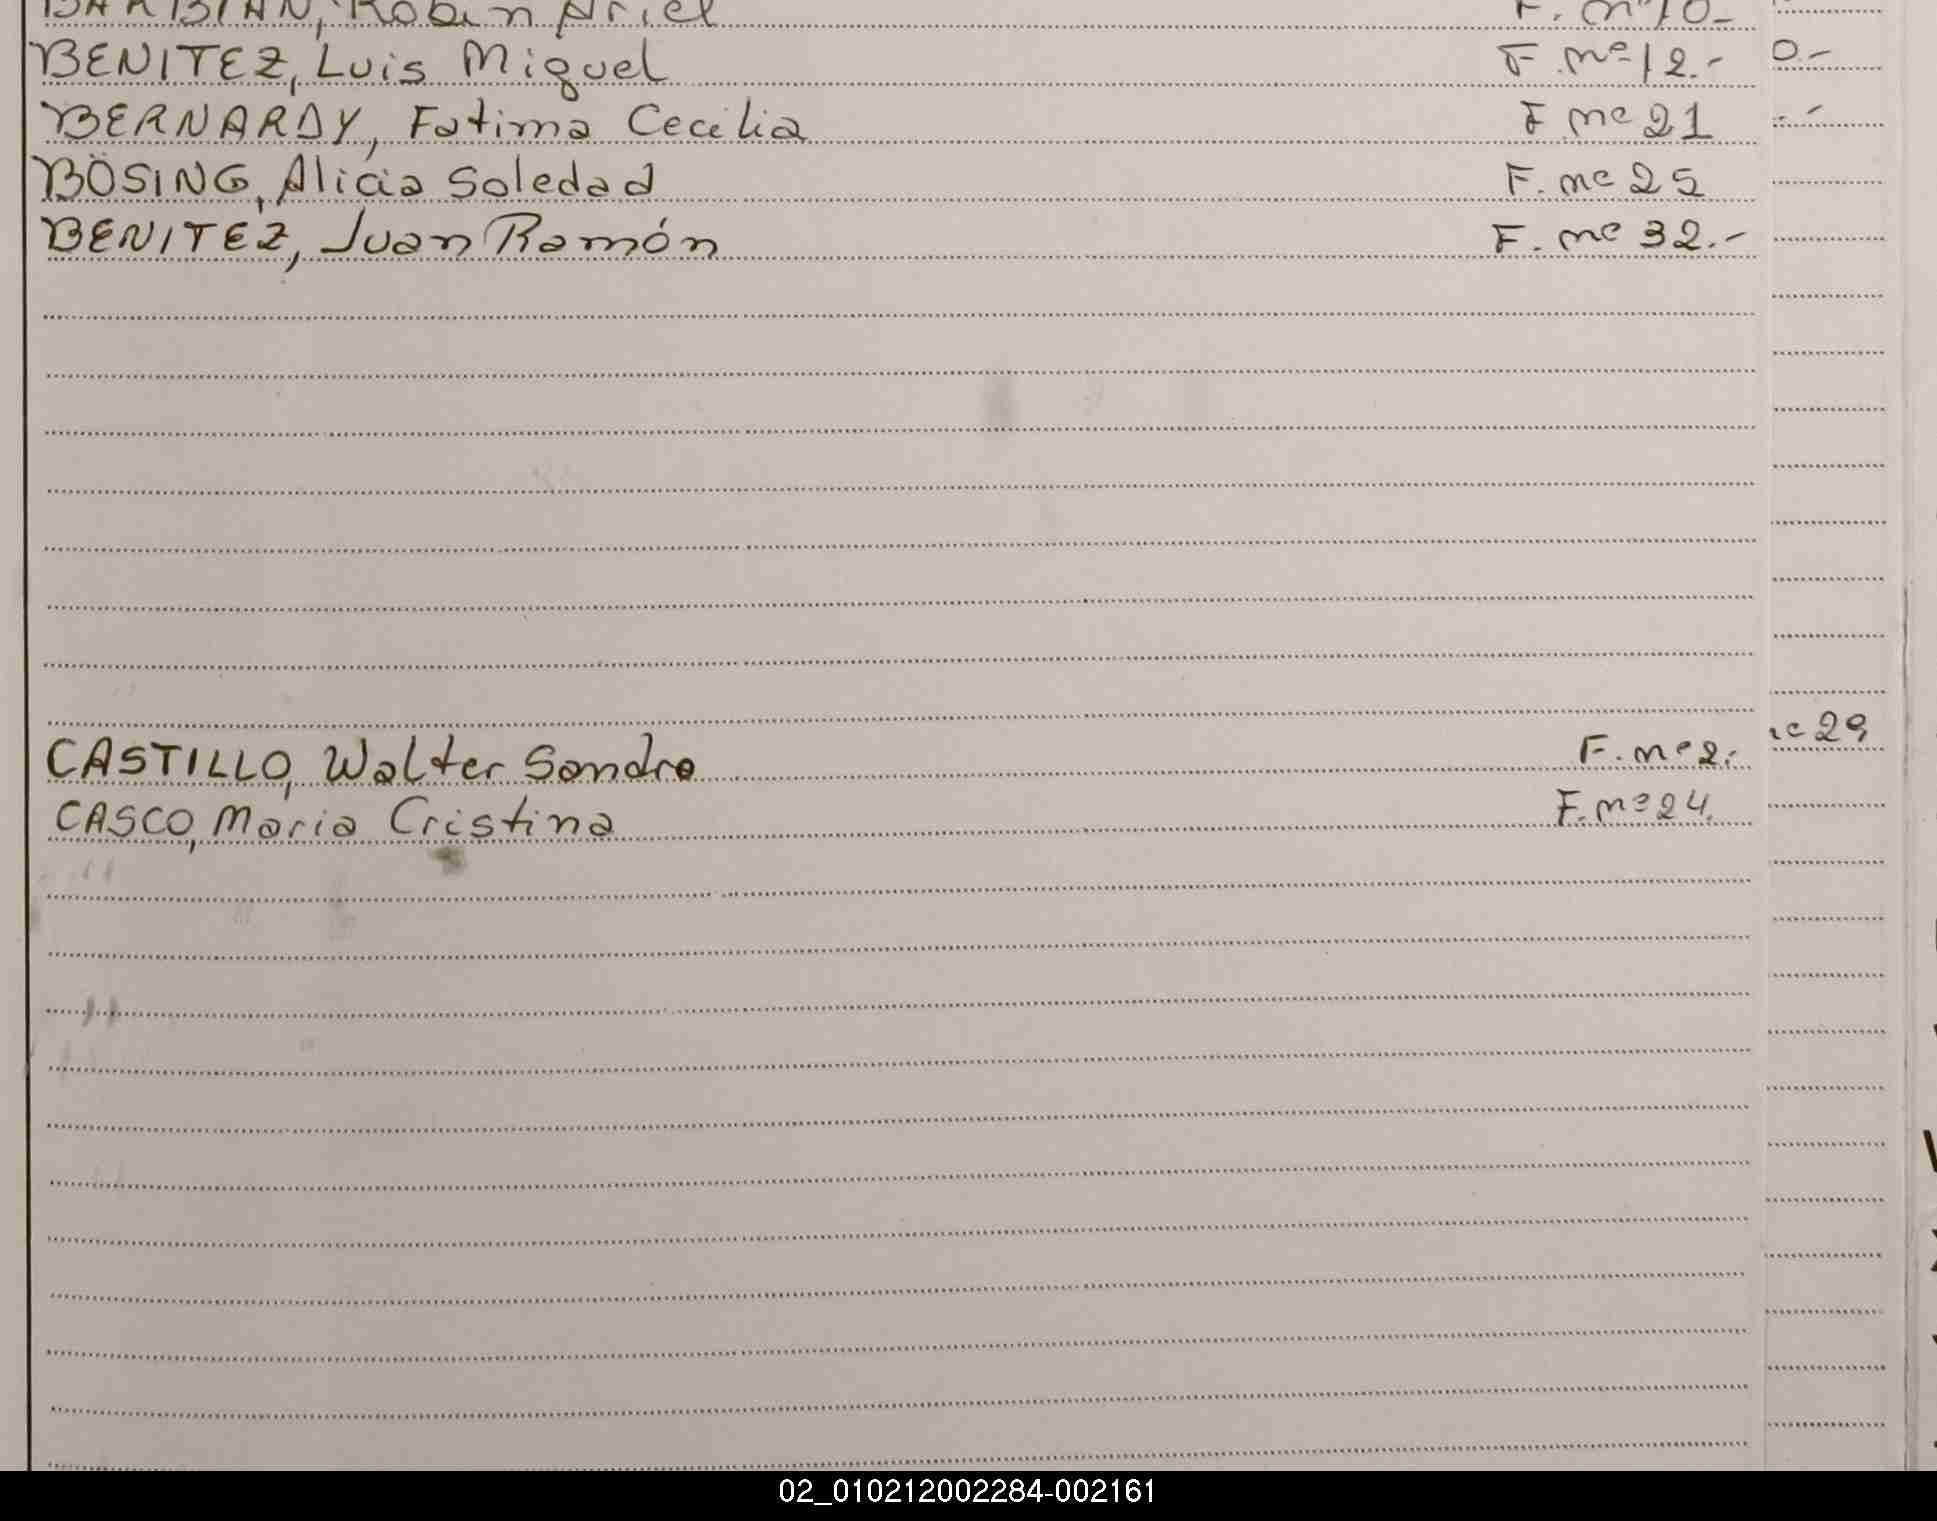 BARBIAN, Robin Ariel F. nº 10-
BENITEZ, Luis Miguel F. nº 12.-
BERNARDY, Fatima Cecilia F nº 21
BÖSING, Alicia Soledad F. nº 25
BENITEZ, Juan Ramón F. nº 32.-
CASTILLO, Walter Sandro F. nº 2.
CASCO, Maria Cristina F. nº 24.
0.-
29
02_010212002284-002161